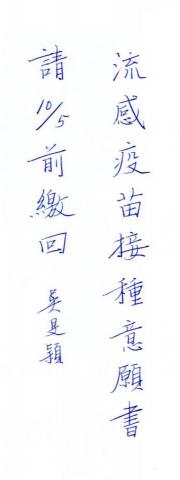 流感疫苗接種意願書
請10/5前繳回
吳是穎